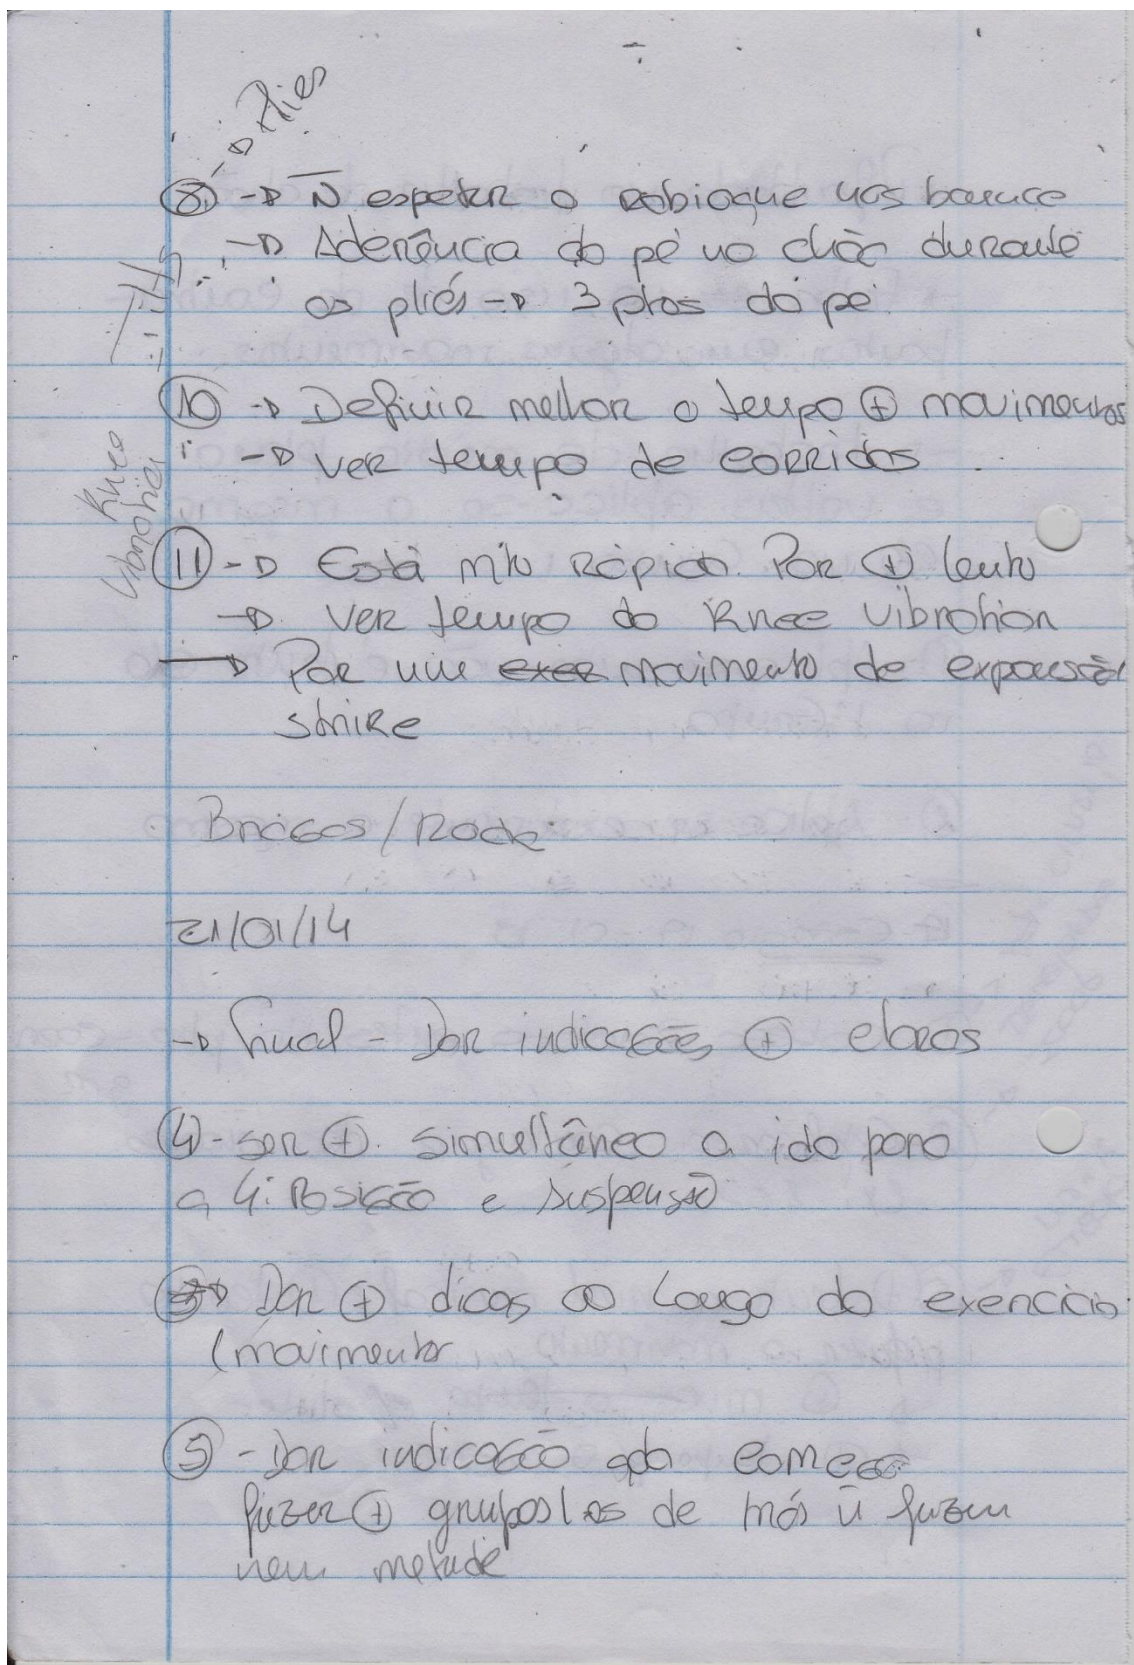 → Plies
⑧ → N̄ espetar o rabioque nos bounce
→ Aderência do pé no chão durante
os pliés → 3 ptos do pé
⑩ → Definir melhor o tempo ⊕ movimentos
→ ver tempo de corridas
Knee
Vibration
⑪ → Está mto Rápido. Por ⊕ lento
→ ver tempo do Knee Vibration
→ Por um exer movimento de expansão
strike
Braços/Roda
21/01/14
→ Final - Dar indicações ⊕ claras
④ - ser ⊕ simultâneo a ida para
a 4ª Posição e suspensão
→ Dar ⊕ dicas ao Longo do exercício
(movimento
⑤ - Dar indicação qdo começa
fazer ⊕ grupos/ os de trás ñ fazem
nem metade